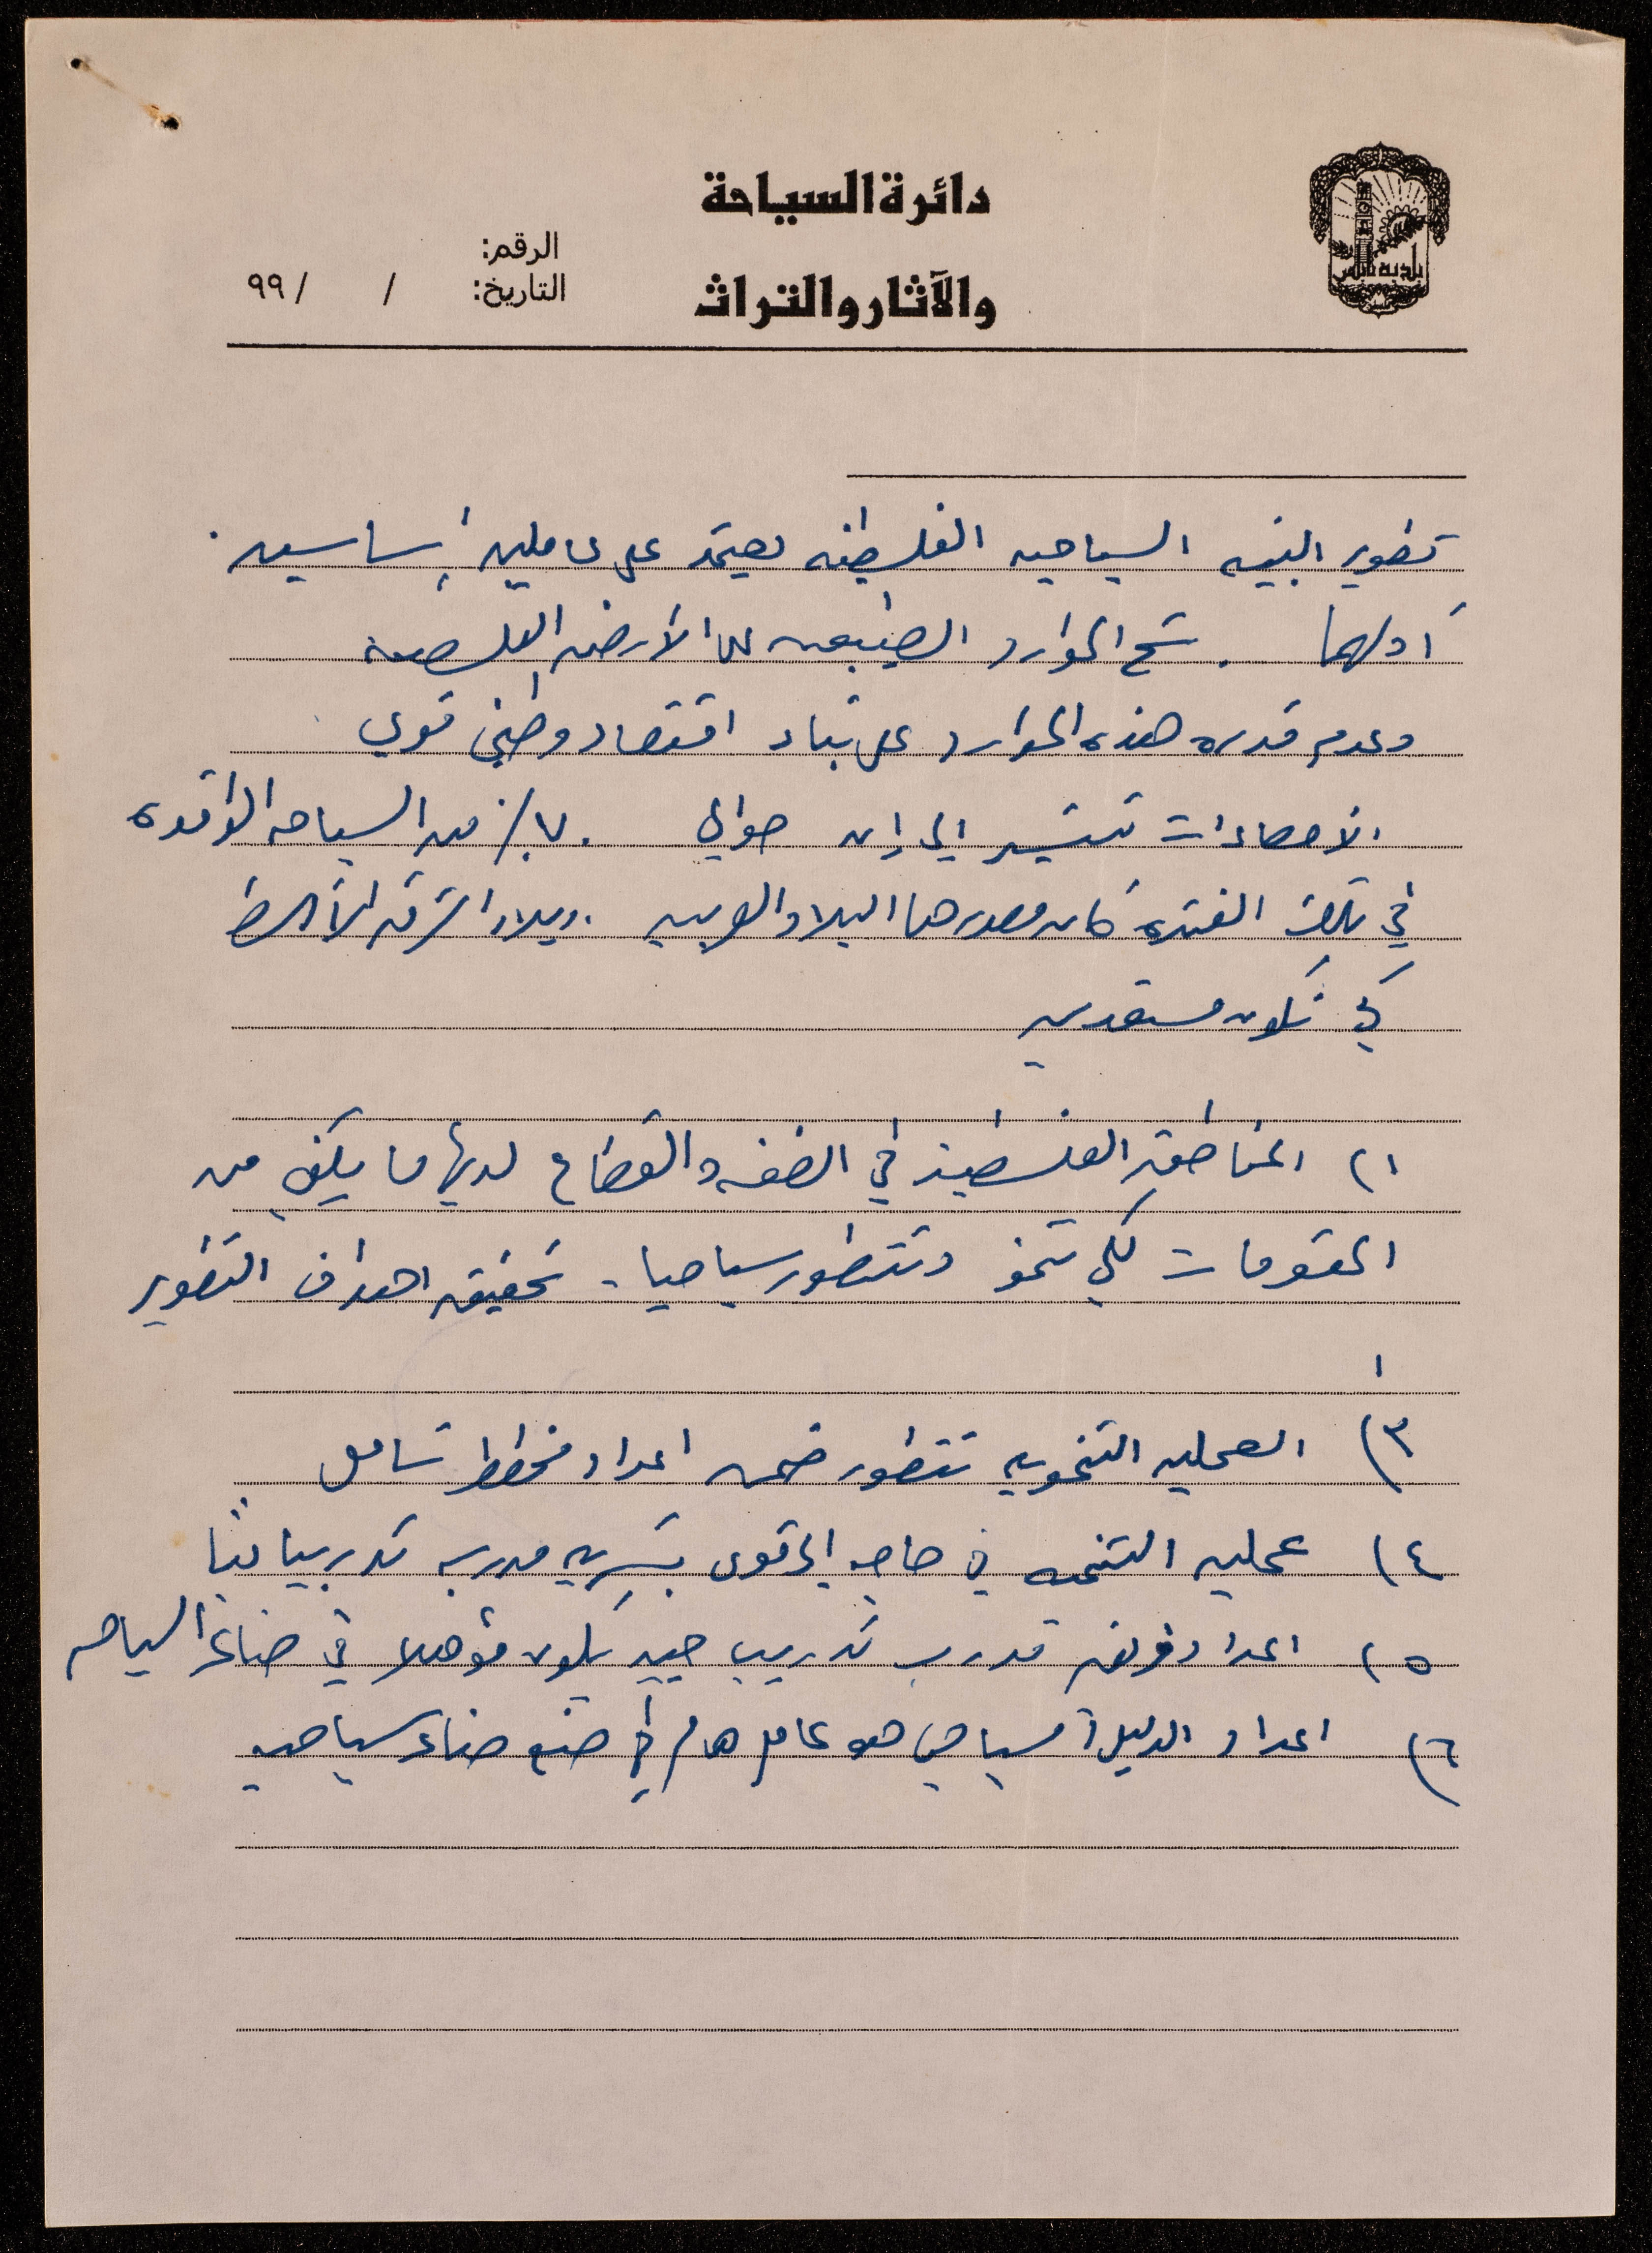 دائرة السياحة
والآثار والتراث
بلدية نابلس
الرقم:
التاريخ: / / ٩٩
تطوير البنيه السياحيه الفلسطينه يعتمد على عاملين أساسيين.
أولهما . شح الموارد الطبيعيه على الأرض الفلسطينيه
وعدم قدره هذه الموارد على بناء اقتصاد وطني قوي
الاحصاءات تشير إلى ان حوالي من السياحه الوافده
في تلك الفتره كان مصدرها البلاد العربيه . وبلاد الشرق الأوسط
كي تكون
١) المناطق الفلسطينيه في الضفه والقطاع لديها ما يكفي من
المقومات لكي تنمو وتتطور سياحيا - تحقيق اهداف التطوير
٣) العمليه التنمويه تتطور ضمن اعداد مخطط شامل
٤) عمليه التنميه في حاجه إلى قوى بشريه مدربه تدريبا فنيا
٥) اعداد فريق مدرب تدريب جيد يكون مؤهلا في صناعة السياحه
٦) اعداد الدليل السياحي هو عامل هام في صنع صناعه سياحيه